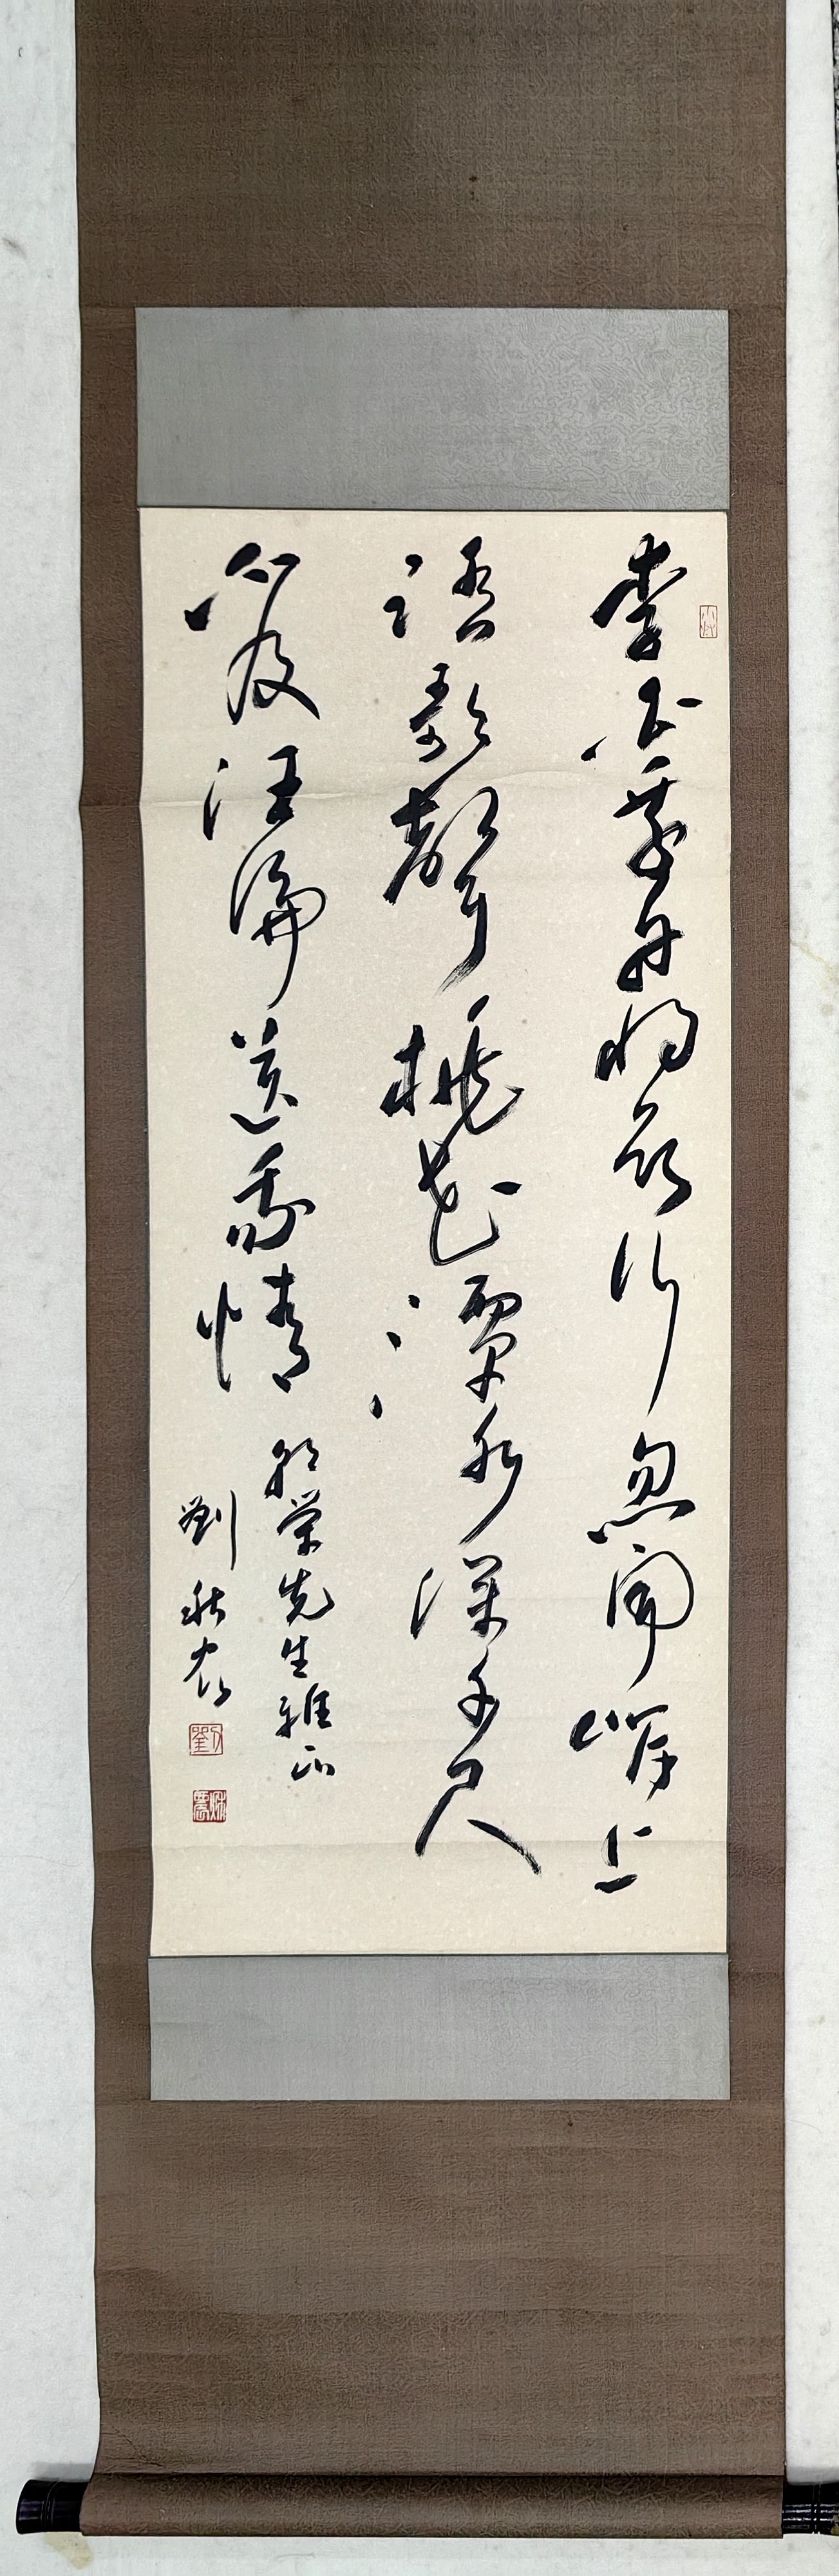 李白乘舟將欲行忽聞岸上
踏歌聲桃花潭水深千尺
不及汪倫送我情
榮先生雅正
劉秋農
劉
秋農